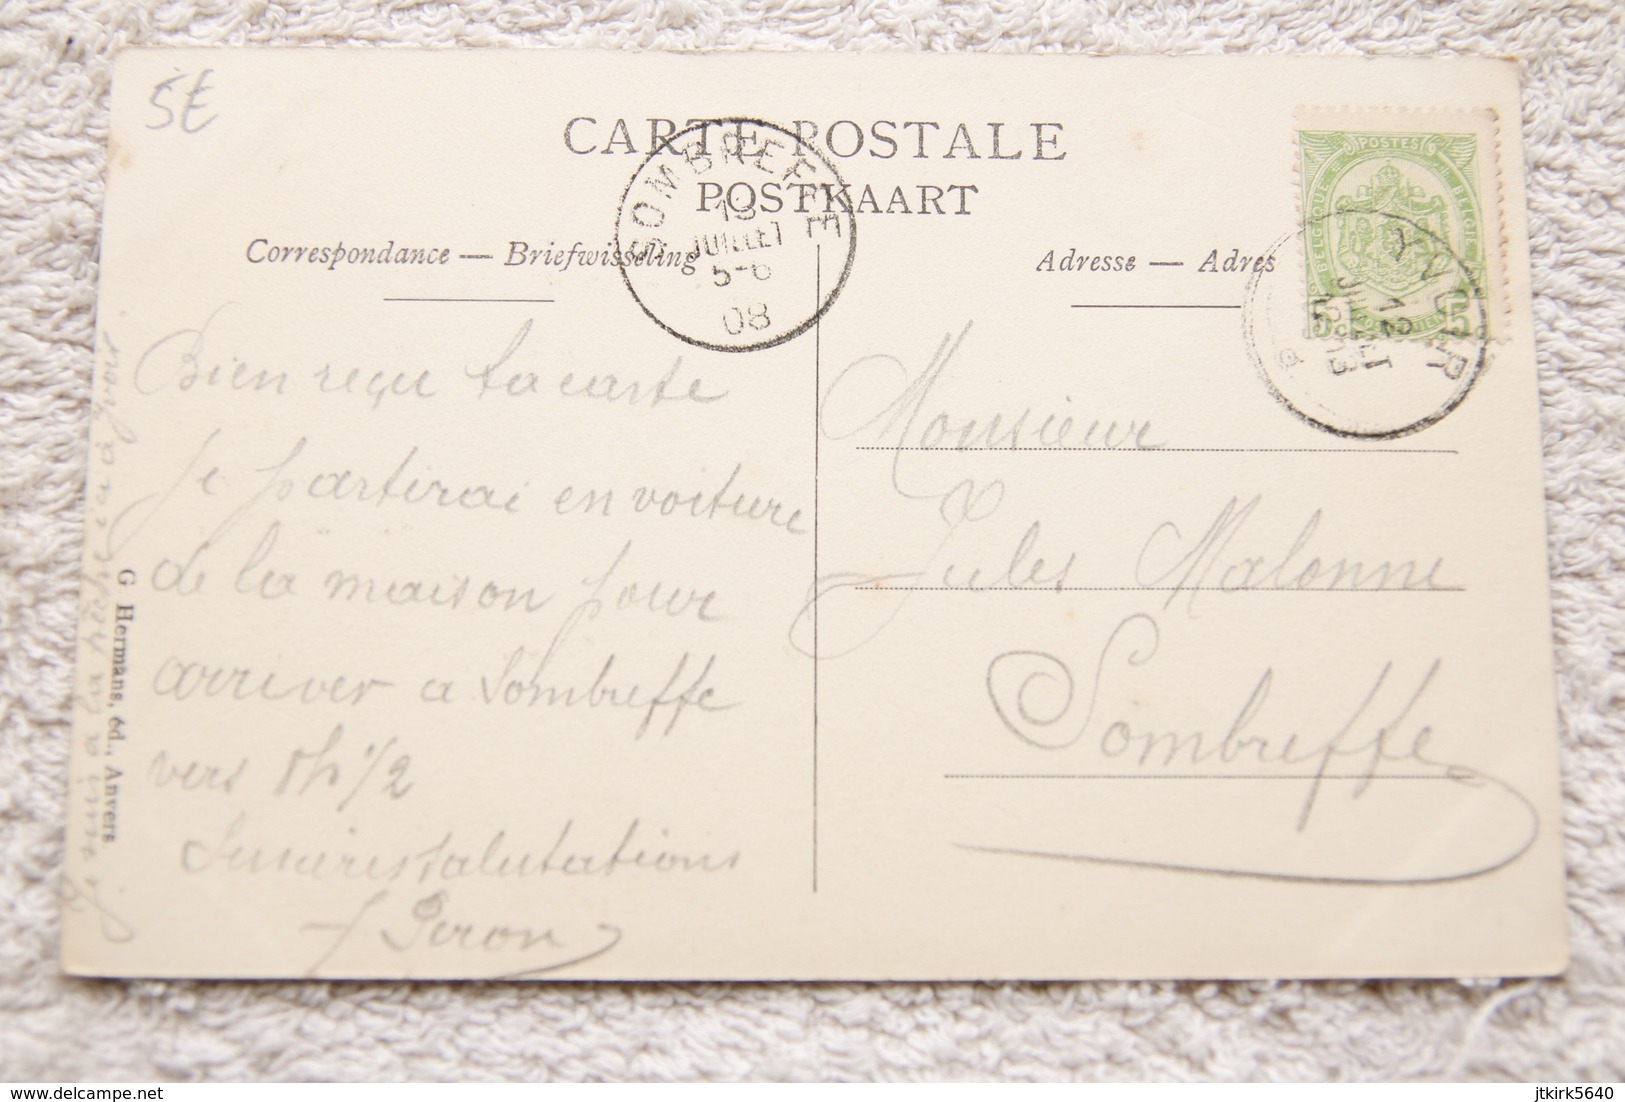 5€
CARTE POSTALE
POSTKAART
SOMBREFFE
13
JUILLET
5-6
08
Correspondance — Briefwisseling
Adresse — Adres
POSTES
BELGIQUE
BELGIË
5
5
12
Bien reçu ta carte
Je partirai en voiture
de la maison pour
arriver a Sombreffe
vers 8h 1/2
salutations
J Piron
Je suis a la
à Yvoir
G Hermans, éd., Anvers
Monsieur
Jules Malonne
Sombreffe
jtkirk5640
delcampe.net